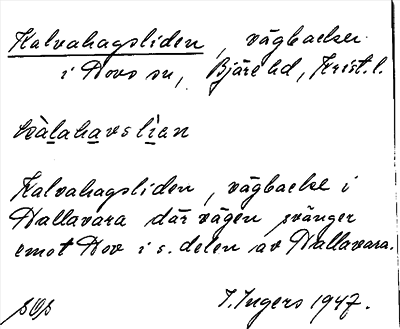 Kalvahagsliden, vägbacke
i Hovs sn, Bjäre hd, Krist. l.
kàlahavslìan
Kalvahagsliden, vägbacke i
Hallavara där vägen svänger
emot Hov i s. delen av Hallavara.
I. Ingers 1947.